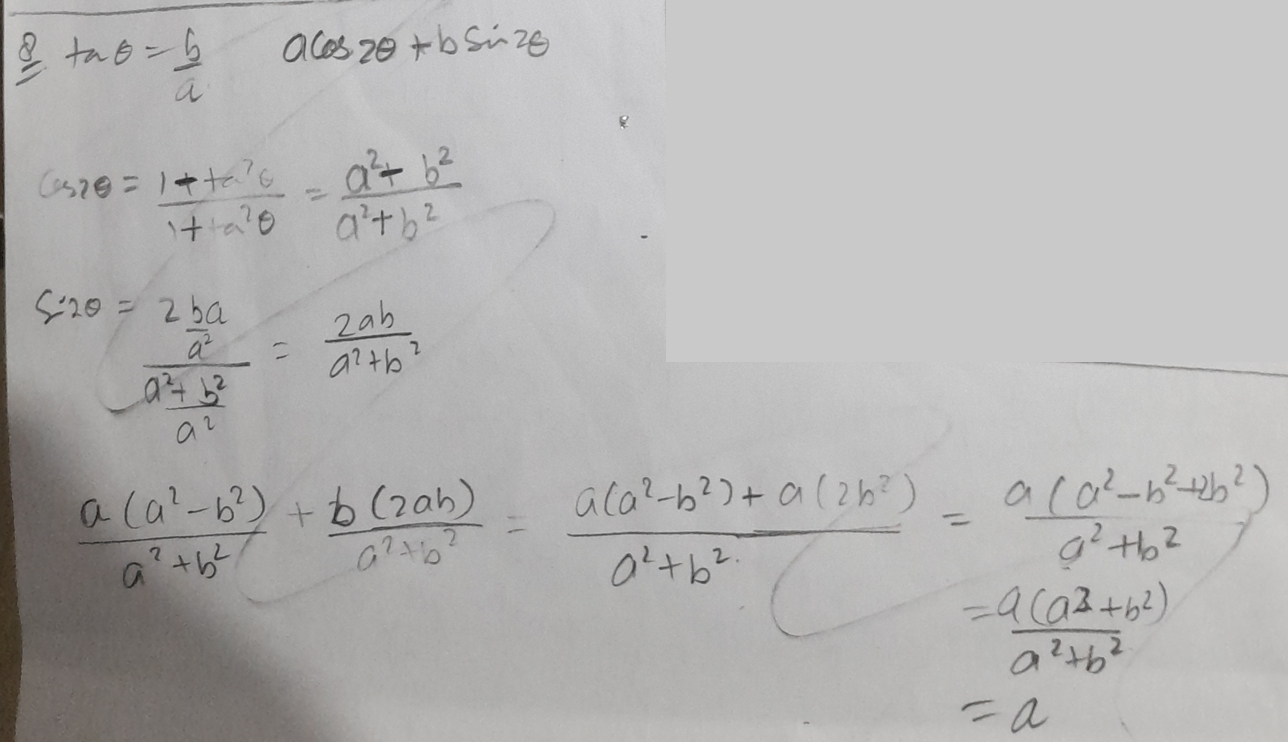 8 tanθ = b/a    acos2θ + bSin2θ
Cos2θ = (1 + tan²θ)/(1 + tan²θ) = (a² + b²)/(a² + b²)
Sin2θ = (2ba/a²)/((a² + b²)/a²) = 2ab/(a² + b²)
a(a² - b²)/(a² + b²) + b(2ab)/(a² + b²) = (a(a² - b²) + a(2b²))/(a² + b²) = a(a² - b² + 2b²)/(a² + b²)
= a(a² + b²)/(a² + b²)
= a